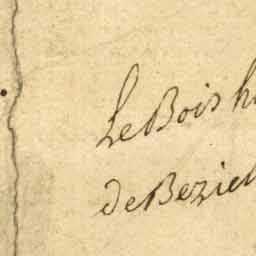 Le Bois h
de Beziel